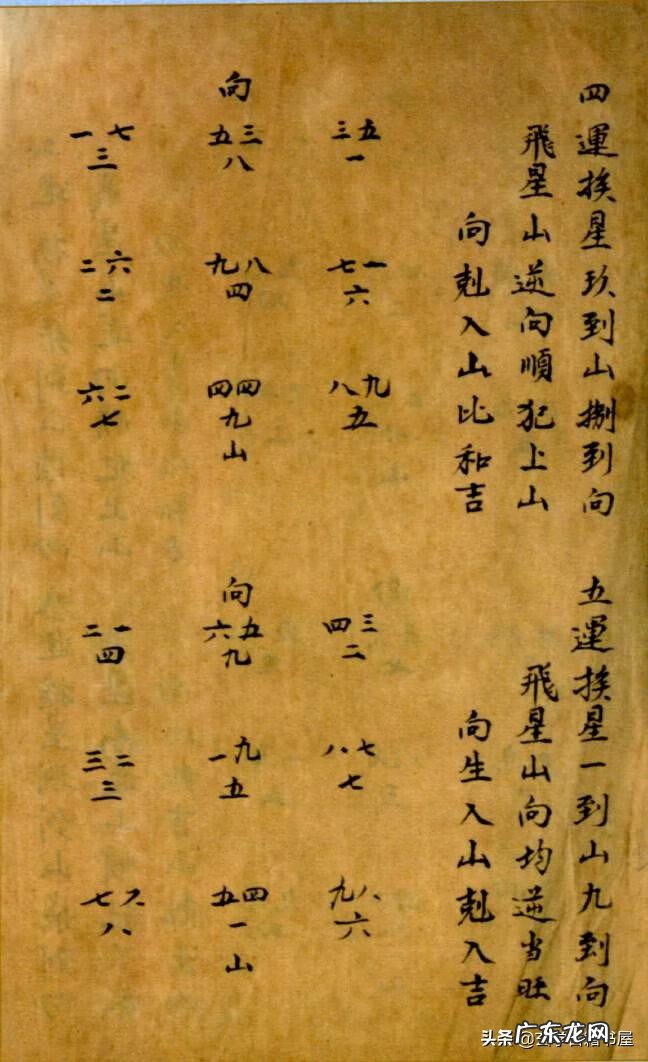 四運挨星玖到山捌到向
飛星山逆向順犯上山
向剋入山比和吉
三五
一
七一
六
八九
五
向
五三
八
九八
四
四四
九
山
一七
三
二六
二
六二
七
五運挨星一到山九到向
飛星山向均逆当旺
向生入山剋入吉
四三
二
八七
七
九八
六
向
六五
九
一九
五
五四
一
山
二一
四
三二
三
七六
八
广东龙网
头条 书屋